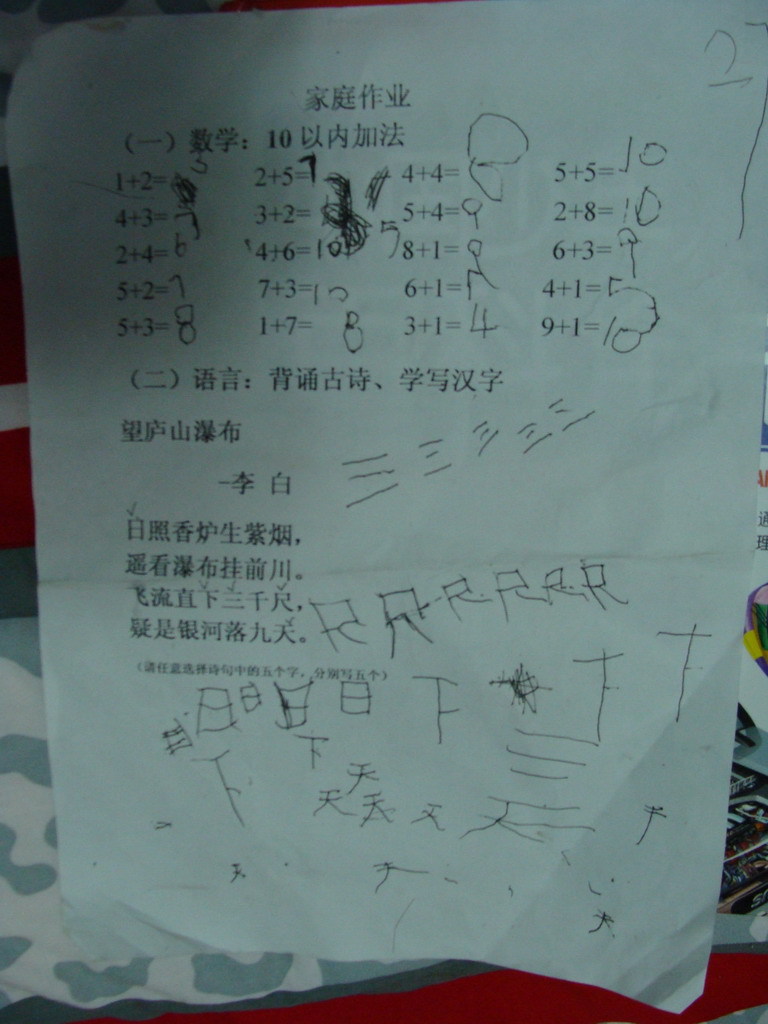 家庭作业
（一）数学：10 以内加法
1+2= 3 2+5=7 4+4= 8 5+5= 10
4+3= 7 3+2= 5 5+4=9 2+8= 10
2+4= 6 4+6=10 8+1= 9 6+3= 9
5+2= 7 7+3=10 6+1= 7 4+1= 5
5+3= 8 1+7= 8 3+1= 4 9+1= 10
（二）语言：背诵古诗、学写汉字
望庐山瀑布
三 三 三 三 三
-李 白
日照香炉生紫烟，
遥看瀑布挂前川。
飞流直下三千尺，
尺 尺 尺 尺 尺 尺
疑是银河落九天。
（请任意选择诗句中的五个字，分别写五个）
日 日 日 日 日 下 下 下
下 下 三
天 天 天 天 天 三